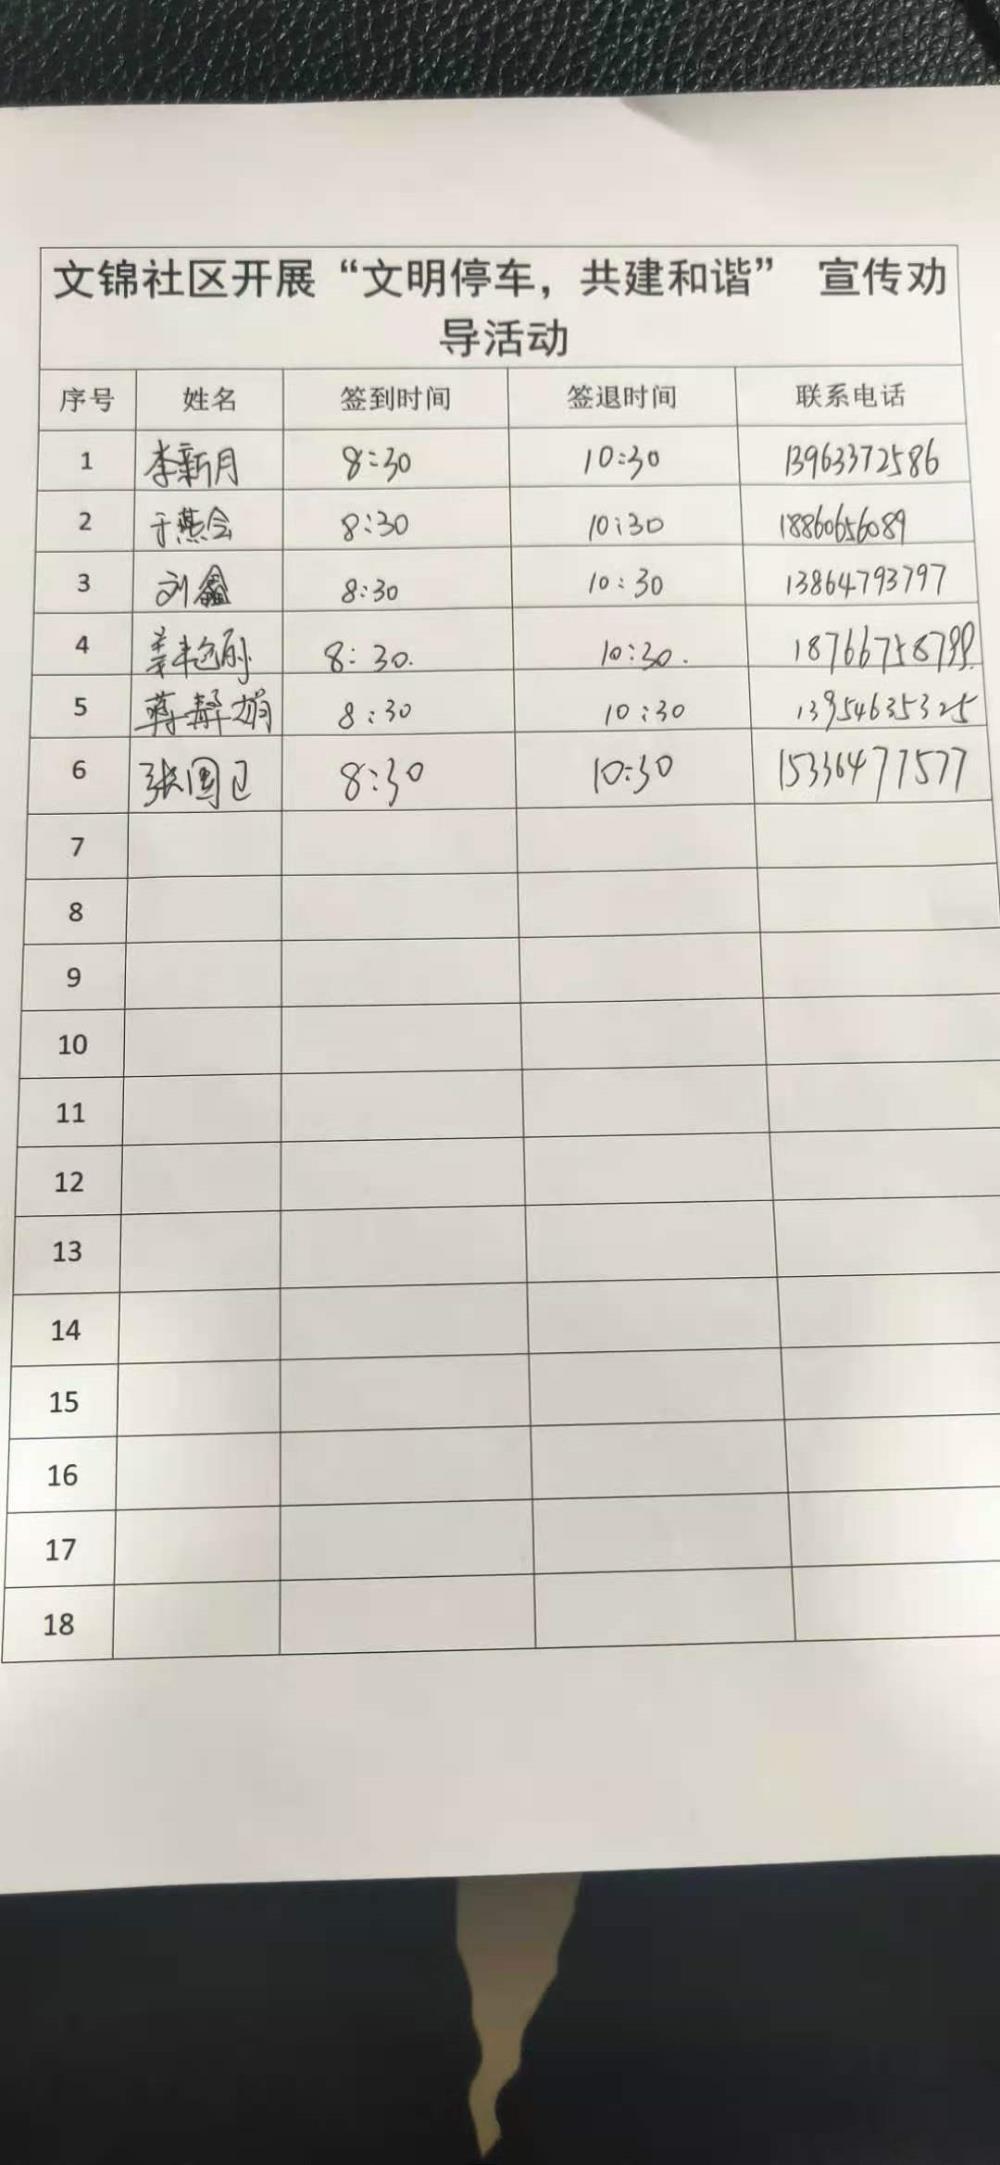 文锦社区开展“文明停车，共建和谐” 宣传劝
导活动
序号 姓名 签到时间 签退时间 联系电话
1 李新月 8:30 10:30 13963372586
2 于燕会 8:30 10:30 18860656089
3 刘鑫 8:30 10:30 13864793797
4 8:30. 10:30. 18766758799
5 蒋静娟 8:30 10:30 13954635325
6 张国卫 8:30 10:30 15336477577
7
8
9
10
11
12
13
14
15
16
17
18